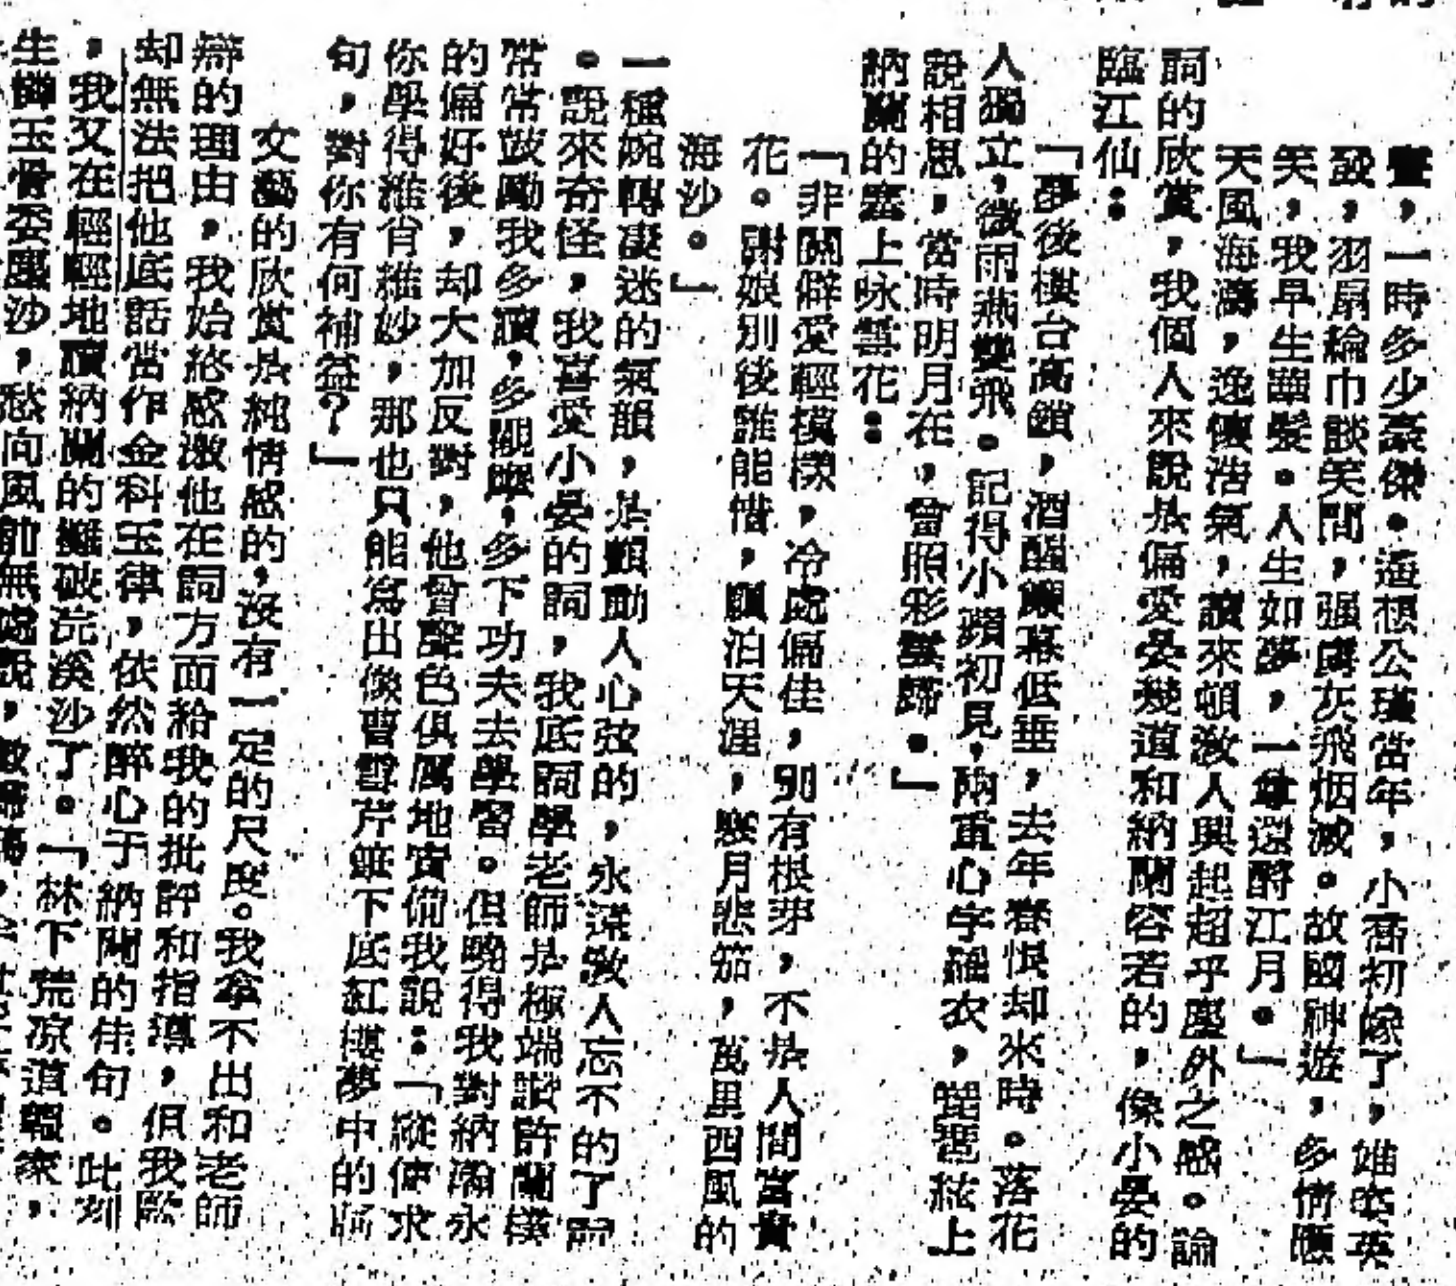 畫，一時多少豪傑。遙想公瑾當年，小喬初嫁了，雄姿英
發，羽扇綸巾談笑間，强虜灰飛烟滅。故國神遊，多情應
笑，我早生華髮。人生如夢，一尊還酹江月。」
天風海濤，逸懷浩氣，讀來頓教人興起超乎塵外之感。論
詞的欣賞，我個人來說是偏愛晏幾道和納蘭容若的，像小晏的
臨江仙：
「夢後樓台高鎖，酒醒簾幕低垂，去年春恨却來時。落花
人獨立，微雨燕雙飛。記得小蘋初見，兩重心字羅衣，琵琶絃上
說相思，當時明月在，曾照彩雲歸。」
納蘭的塞上咏雪花：
「非關僻愛輕模樣，冷處偏佳，別有根芽，不是人間富貴
花。謝娘別後誰能惜，飄泊天涯，寒月悲笳，萬里西風的
海沙。」
一種婉轉凄迷的氣韻，是顫動人心弦的，永遠教人忘不的了
。說來奇怪，我喜愛小晏的詞，我底詞學老師是極端讚許蘭
常常鼓勵我多讀，多觀摩，多下功夫去學習。但曉得我對納瀚永
的偏好後，却大加反對，他會聲色俱厲地責備我說：「縱使求
你學得維肖維妙，那也只能寫出像曹雪芹筆下底紅樓夢中的
句，對你有何補益？」
文藝的欣賞是純情感的，沒有一定的尺度。我拿不出和老師
辯的理由，我始終感激他在詞方面給我的批評和指導，但我
却無法把他底話當作金科玉律，依然醉心于納蘭的佳句。此刻
，我又在輕輕地讀納蘭的攤破浣溪沙了。「林下荒凉道韞家，
生憐玉骨委塵沙，愁向風前無處說，數歸鴉，